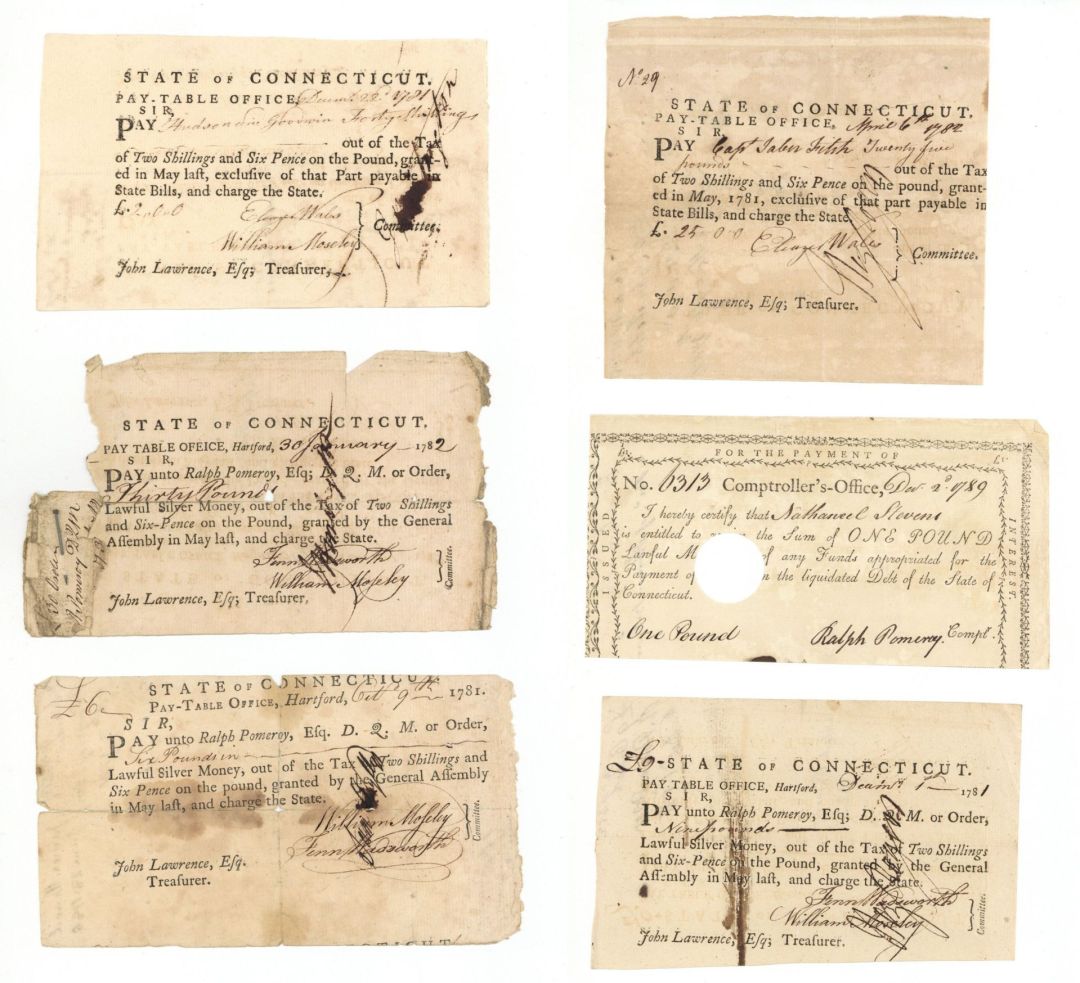 STATE OF CONNECTICUT.
PAY-TABLE OFFICE, 1781
SIR,
PAY Hudson Goodwin Forty Shillings
out of the Tax
of Two Shillings and Six Pence on the Pound, grant-
ed in May laſt, excluſive of that Part payable in
State Bills, and charge the State.
£. 2 0 0
Eleazer Wales
William Moseley
Committee.
John Lawrence, Eſq; Treaſurer,
STATE OF CONNECTICUT.
PAY TABLE OFFICE, Hartford, 30 January 1782
SIR,
PAY unto Ralph Pomeroy, Eſq; D. Q. M. or Order,
Thirty Pounds
Lawful Silver Money, out of the Tax of Two Shillings
and Six-Pence on the Pound, granted by the General
Aſſembly in May laſt, and charge the State.
Fenn Wadsworth
William Moſeley
Committee.
John Lawrence, Eſq; Treaſurer.
£6
STATE OF CONNECTICUT
PAY-TABLE OFFICE, Hartford, Octr 9th 1781.
SIR,
PAY unto Ralph Pomeroy, Eſq. D. Q. M. or Order,
Six Pounds in
Lawful Silver Money, out of the Tax of Two Shillings and
Six Pence on the pound, granted by the General Aſſembly
in May laſt, and charge the State.
William Moſeley
Fenn Wadsworth
Committee.
John Lawrence, Eſq.
Treaſurer.
No 29
STATE OF CONNECTICUT.
PAY-TABLE OFFICE, April 6th 1782
SIR,
PAY Capt Jabez Fitch Twenty five
pounds
out of the Tax
of Two Shillings and Six Pence on the pound, grant-
ed in May, 1781, excluſive of that part payable in
State Bills, and charge the State
£. 25 0 0
Eleazer Wales
Committee.
John Lawrence, Eſq; Treaſurer.
FOR THE PAYMENT OF
ISSUED
INTEREST.
No. 6313 Comptroller's-Office, 1789
I hereby certify that Nathaneel Stevens
is entitled to the Sum of ONE POUND
Lawful M of any Funds appropriated for the
Payment of on the liquidated Debt of the State of
Connecticut.
One Pound
Ralph Pomeroy. Compt.
£9-
STATE OF CONNECTICUT.
PAY TABLE OFFICE, Hartford, 1781
SIR,
PAY unto Ralph Pomeroy, Eſq; D. Q. M. or Order,
Nine pounds
Lawful Silver Money, out of the Tax of Two Shillings
and Six-Pence on the Pound, granted by the General
Aſſembly in May laſt, and charge the State.
Fenn Wadsworth
William Moſeley
Committee.
John Lawrence, Eſq; Treaſurer.